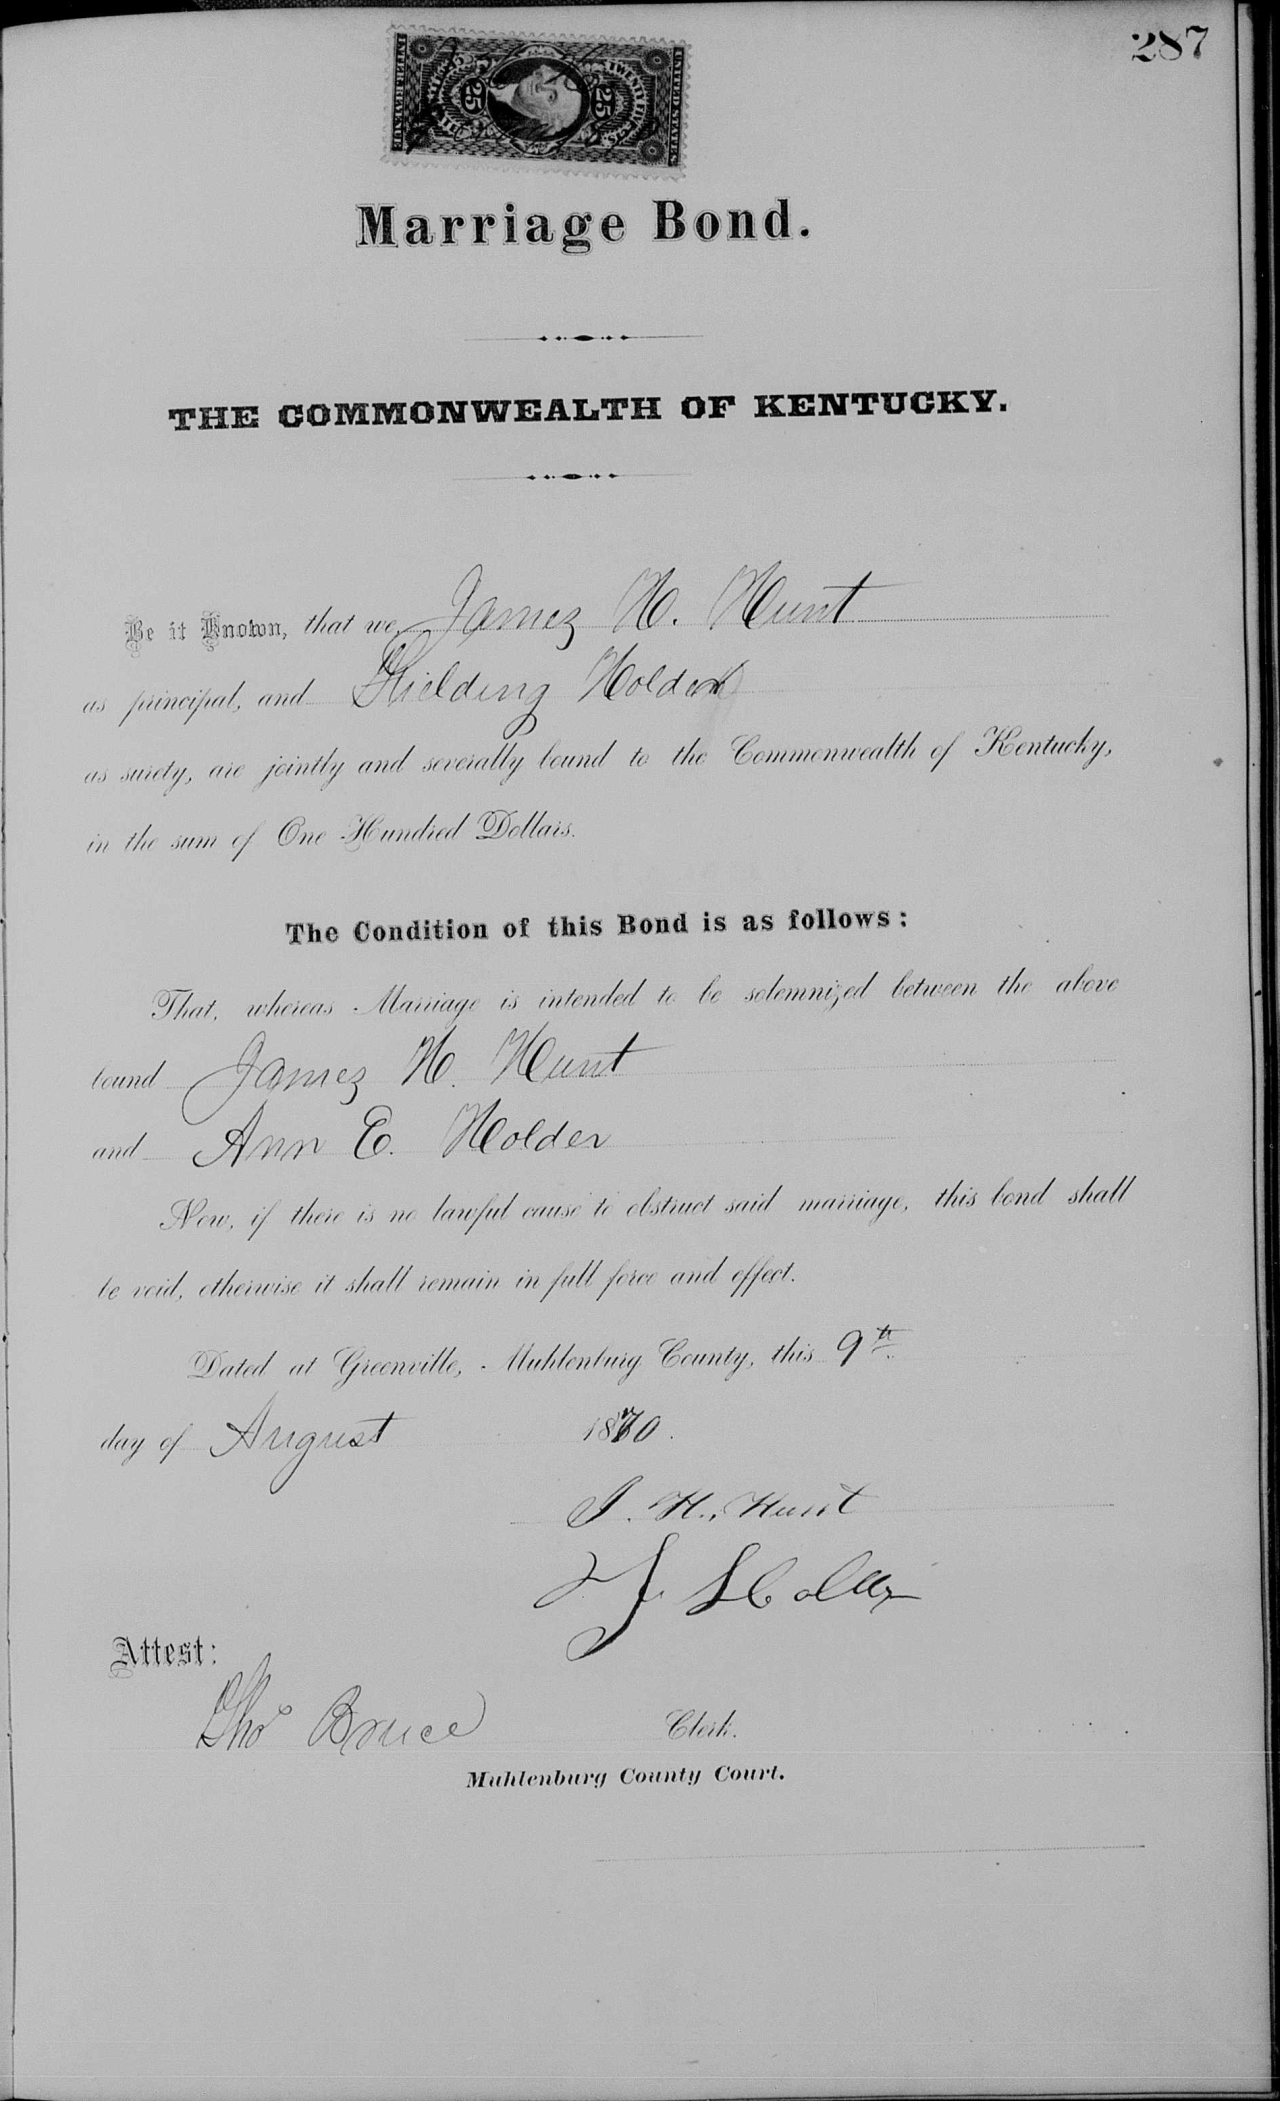 287
UNITED STATES
TWENTY FIVE CTS.
25
25
INTER. REVENUE
Marriage Bond.
THE COMMONWEALTH OF KENTUCKY.
Be it Known, that we, James H. Hunt
as principal, and Fielding Holder
as surety, are jointly and severally bound to the Commonwealth of Kentucky,
in the sum of One Hundred Dollars.
The Condition of this Bond is as follows:
That, whereas Marriage is intended to be solemnized between the above
bound James H. Hunt
and Ann E. Holder
Now, if there is no lawful cause to obstruct said marriage, this bond shall
be void, otherwise it shall remain in full force and effect.
Dated at Greenville, Muhlenburg County, this 9th
day of August 1870.
J. H. Hunt
F Holder
Attest:
Thos Bruce Clerk.
Muhlenburg County Court.